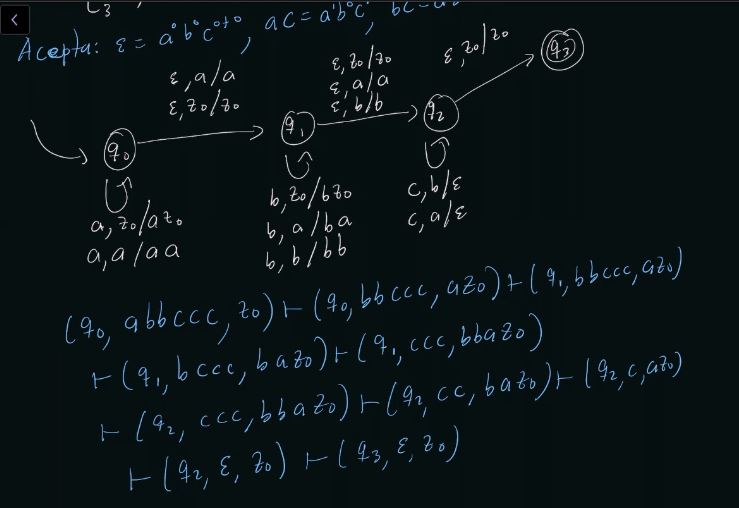 Acepta: ε = a⁰b⁰c⁰⁺⁰, ac = a¹b⁰c¹
ε, a/a
ε, z₀/z₀
ε, z₀/z₀
ε, a/a
ε, b/b
ε, z₀/z₀
q₀
q₁
q₂
q₃
a, z₀/az₀
a, a/aa
b, z₀/bz₀
b, a/ba
b, b/bb
c, b/ε
c, a/ε
(q₀, abbccc, z₀) ⊢ (q₀, bbccc, az₀) ⊢ (q₁, bbccc, az₀)
⊢ (q₁, bccc, baz₀) ⊢ (q₁, ccc, bbaz₀)
⊢ (q₂, ccc, bbaz₀) ⊢ (q₂, cc, baz₀) ⊢ (q₂, c, az₀)
⊢ (q₂, ε, z₀) ⊢ (q₃, ε, z₀)